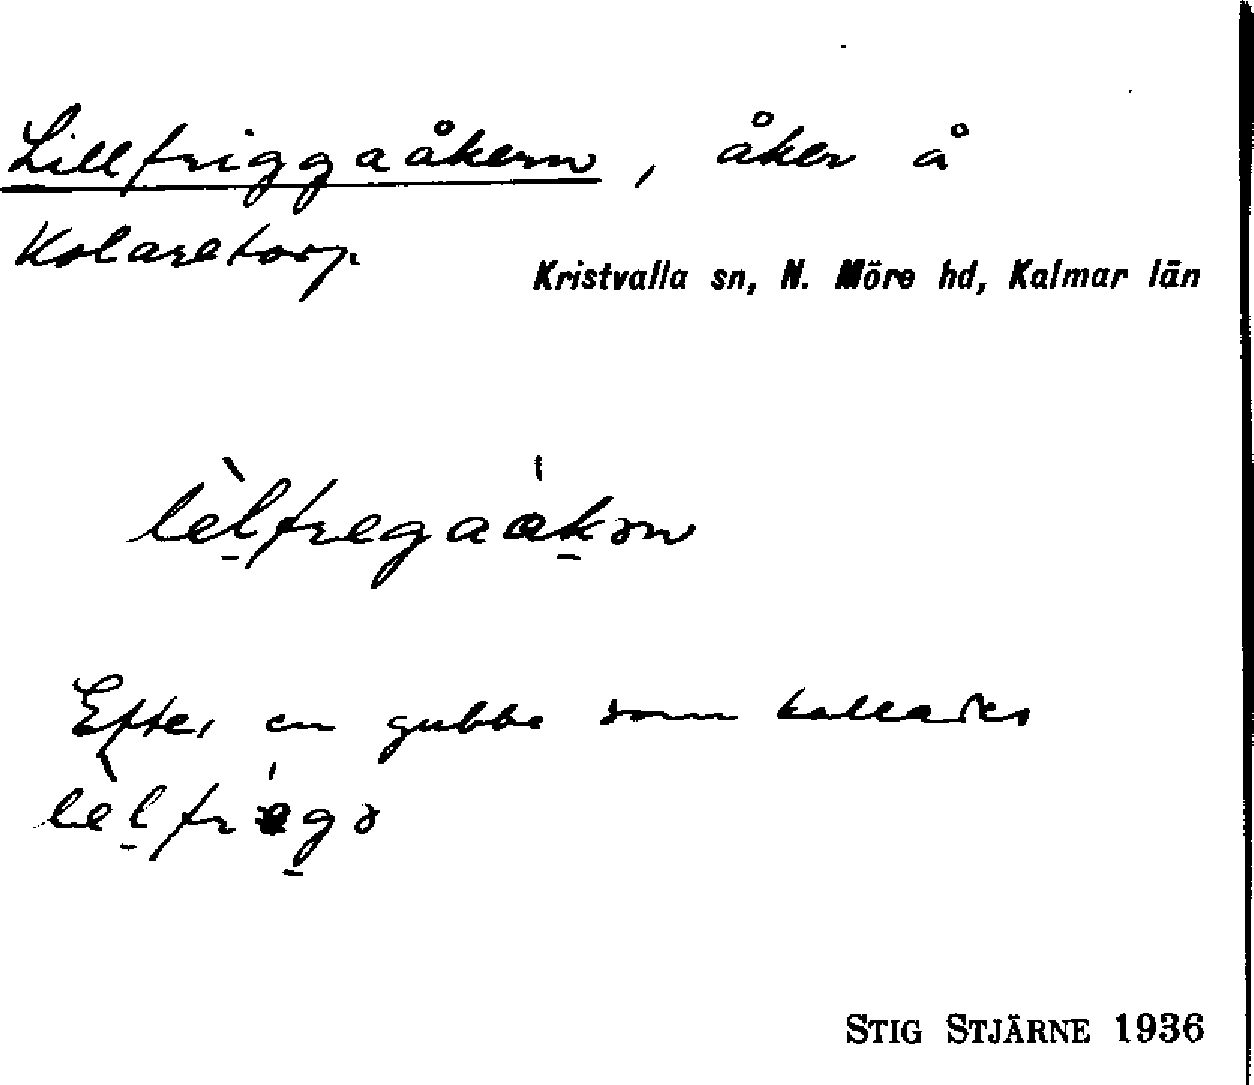 Lillfriggaåkern, åker å
Kolaretorp.
Kristvalla sn, N. Möre hd, Kalmar län
lèl̠fregaák̠ən
Efter en gubbe som kallades
lèl̠fríeg̠ə
STIG STJÄRNE 1936